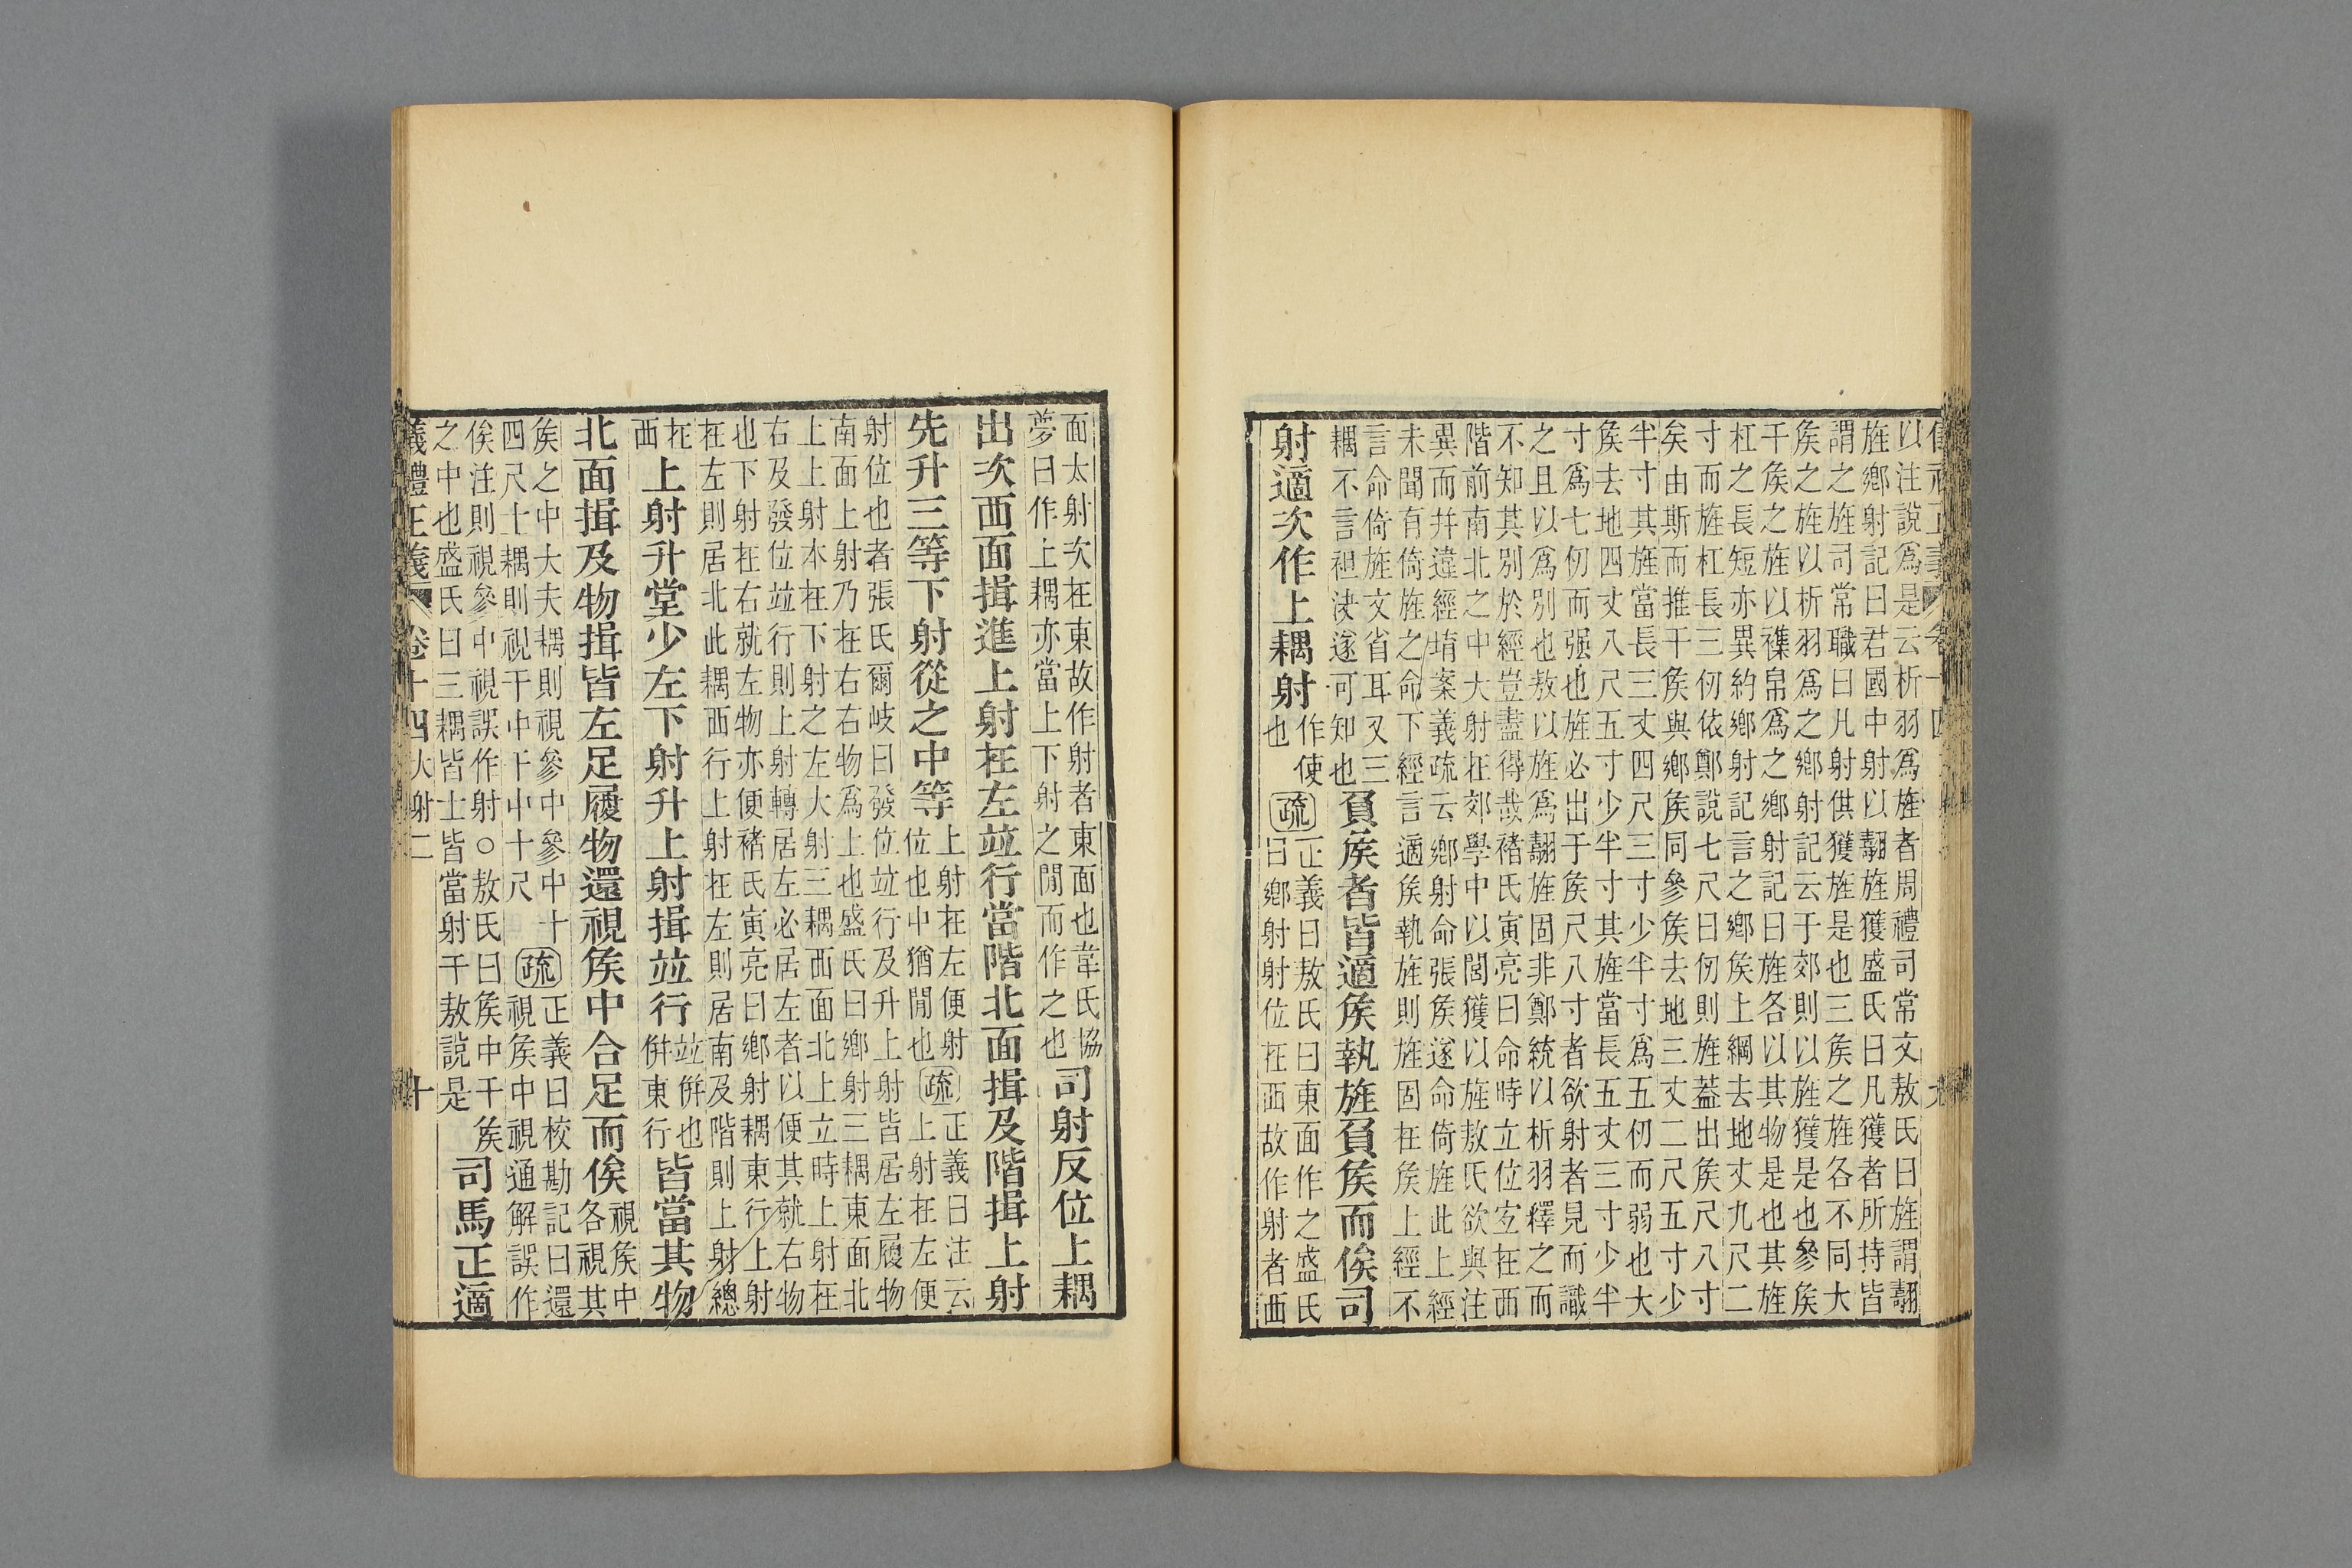 以注說爲是云析羽爲旌者周禮司常文敖氏曰旌謂翿
旌鄉射記曰君國中射以翿旌獲盛氏曰凡獲者所持皆
謂之旌司常職曰凡射供獲旌是也三矦之旌各不同大
矦之旌以析羽爲之鄉射記云于郊則以旌獲是也參矦
干矦之旌以襍帛爲之鄉射記曰旌各以其物是也其旌
杠之長短亦異約鄉射記言之鄉矦上綱去地丈九尺二
寸而旌杠長三仞依鄭說七尺曰仞則旌蓋出矦尺八寸
矣由斯而推干矦與鄉矦同參矦去地三丈二尺五寸少
半寸其旌當長三丈四尺三寸少半寸爲五仞而弱也大
矦去地四丈八尺五寸少半寸其旌當長五丈三寸少半
寸爲七仞而强也旌必出于矦尺八寸者欲射者見而識
之且以爲別也敖以旌爲翿旌固非鄭統以析羽釋之而
不知其別於經豈盡得哉褚氏寅亮曰命時立位宐在西
階前南北之中大射在郊學中以閭獲以旌敖氏欲與注
異而幷違經堉案義疏云鄉射命張矦遂命倚旌此上經
未聞有倚旌之命下經言適矦執旌則旌固在矦上經不
言命倚旌文省耳又三
耦不言袒決遂可知也
負矦者皆適矦執旌負矦而俟司
射適次作上耦射
作使
也
疏
正義曰敖氏曰東面作之盛氏
曰鄉射射位在西故作射者西
面太射次在東故作射者東面也韋氏協
夢曰作上耦亦當上下射之閒而作之也
司射反位上耦
出次西面揖進上射在左竝行當階北面揖及階揖上射
先升三等下射從之中等
上射在左便射
位也中猶閒也
疏
正義曰注云
上射在左便
射位也者張氏爾岐曰發位竝行及升上射皆居左履物
南面上射乃在右右物爲上也盛氏曰鄉射三耦東面北
上上射本在下射之左大射三耦西面北上立時上射在
右及發位竝行則上射轉居左必居左者以便其就右物
也下射在右就左物亦便褚氏寅亮曰鄉射耦東行上射
在左則居北此耦西行上射在左則居南及階則上射總
在
西
上射升堂少左下射升上射揖竝行
竝併也
併東行
皆當其物
北面揖及物揖皆左足履物還視矦中合足而俟
視矦中
各視其
矦之中大夫耦則視參中參中十
四尺士耦則視干中干中十尺
疏
正義曰校勘記曰還
視矦中視通解誤作
俟注則視參中視誤作射○敖氏曰矦中干矦
之中也盛氏曰三耦皆士皆當射干敖說是
司馬正適
儀禮正義 卷十四 大射二 十